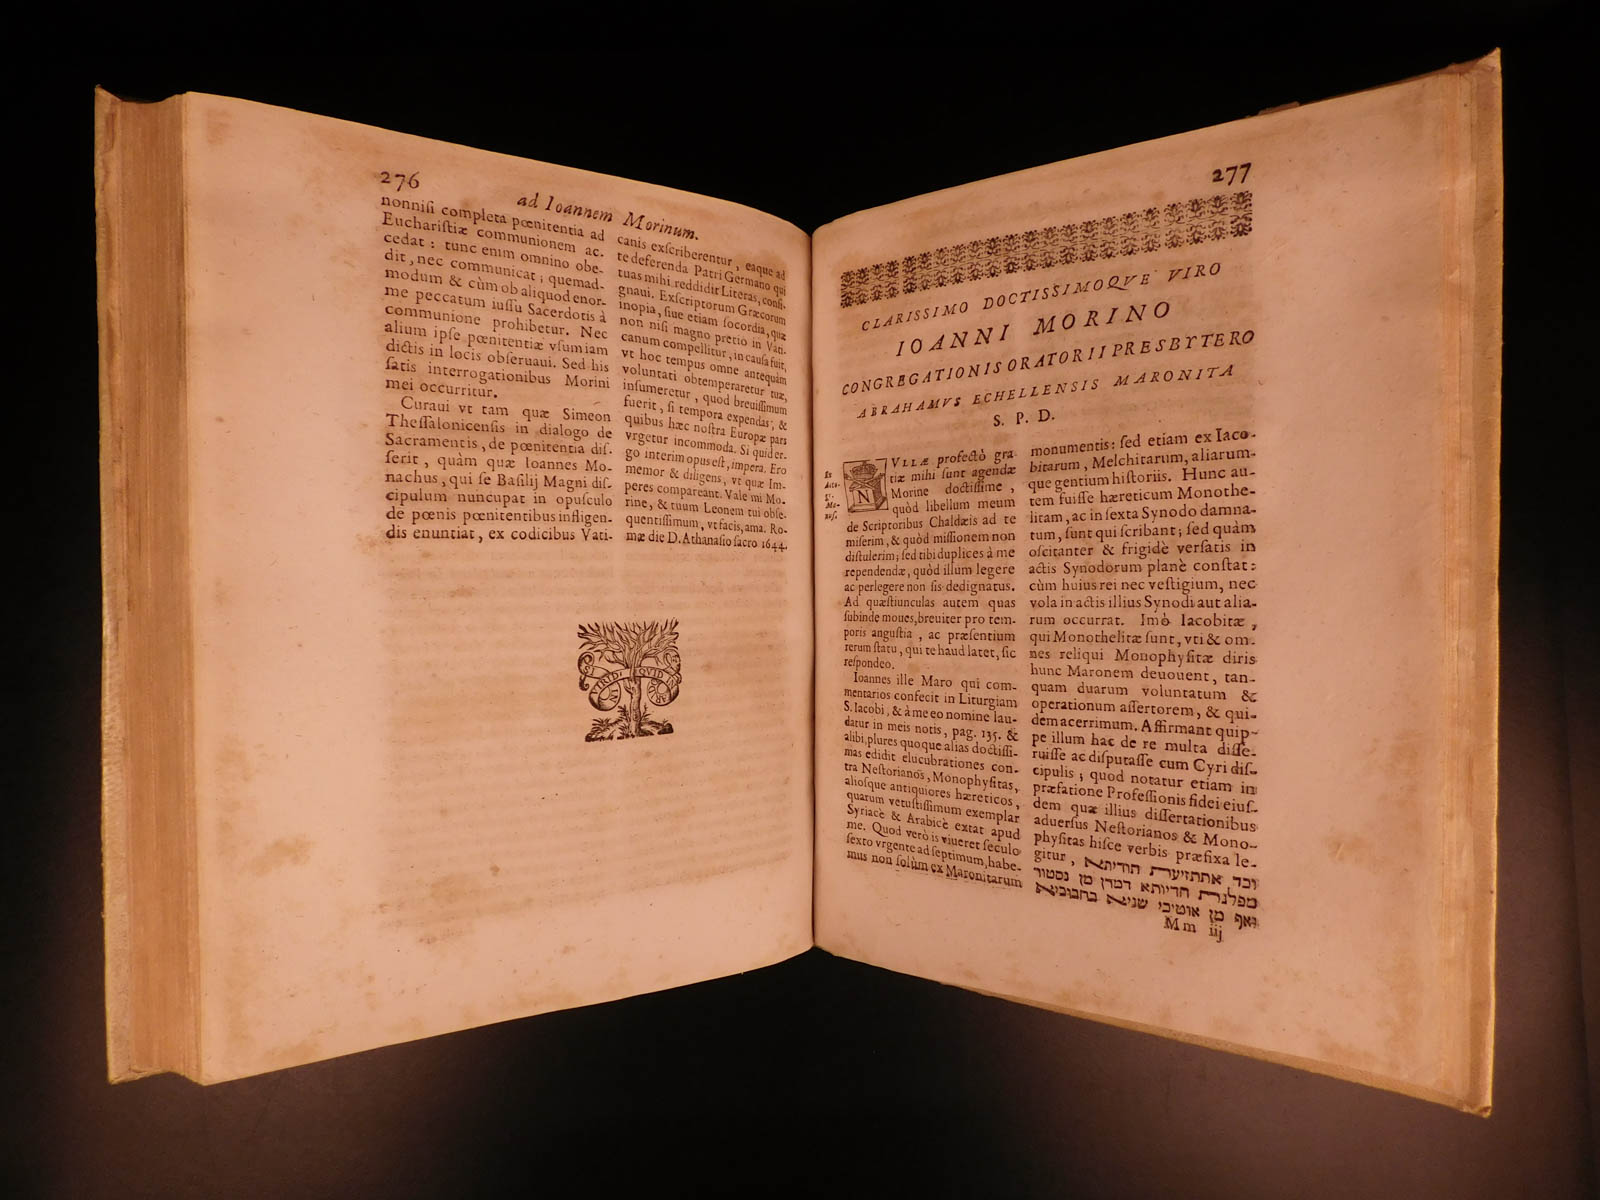 276
ad Ioannem Morinum.
nonnisi completa pœnitentia ad
Euchariſtiæ communionem ac-
cedat : tunc enim omnino obe-
dit, nec communicat ; quemad-
modum & cùm ob aliquod enor-
me peccatum iuſſu Sacerdotis à
communione prohibetur. Nec
alium ipſe pœnitentiæ vſum iam
dictis in locis obſeruaui. Sed his
ſatis interrogationibus Morini
mei occurritur.
Curaui vt tam quæ Simeon
Theſſalonicenſis in dialogo de
Sacramentis, de pœnitentia diſ-
ſerit, quàm quæ Ioannes Mo-
nachus, qui ſe Baſilij Magni diſ-
cipulum nuncupat in opuſculo
de pœnis pœnitentibus infligen-
dis enuntiat, ex codicibus Vati-
canis exſcriberentur, eaque ad
te deferenda Patri Germano qui
tuas mihi reddidit Literas, conſi-
gnaui. Exſcriptorum Græcorum
inopia, ſiue etiam ſocordia, quæ
non niſi magno pretio in Vati-
canum compellitur, in cauſa fuit,
vt hoc tempus omne antequàm
voluntati obtemperaretur tuæ,
inſumeretur, quod breuiſſimum
fuerit, ſi tempora expendas, &
quibus hæc noſtra Europæ pars
vrgetur incommoda. Si quid er-
go interim opus eſt, impera. Ero
memor & diligens, vt quæ Im-
peres compareant. Vale mi Mo-
rine, & tuum Leonem tui obſe-
quentiſſimum, vt facis, ama. Ro-
mæ die D. Athanaſio ſacro 1644.
IN VIRIDI QUID IN ARIDO
277
CLARISSIMO DOCTISSIMOQVE VIRO
IOANNI MORINO
CONGREGATIONIS ORATORII PRESBYTERO
ABRAHAMVS ECHELLENSIS MARONITA
S. P. D.
NVLLÆ profectò gra-
tiæ mihi ſunt agendæ
Morine doctiſſime,
quòd libellum meum
de Scriptoribus Chaldæis ad te
miſerim, & quòd miſſionem non
diſtulerim; ſed tibi duplices à me
rependendæ, quòd illum legere
ac perlegere non ſis dedignatus.
Ad quæſtiunculas autem quas
ſubinde moues, breuiter pro tem-
poris anguſtia, ac præſentium
rerum ſtatu, qui te haud latet, ſic
reſpondeo.
Ioannes ille Maro qui com-
mentarios confecit in Liturgiam
S. Iacobi, & à me eo nomine lau-
datur in meis notis, pag. 135. &
alibi, plures quoque alias doctiſſi-
mas edidit elucubrationes con-
tra Neſtorianos, Monophyſitas,
alioſque antiquiores hæreticos,
quarum vetuſtiſſimum exemplar
Syriacè & Arabicè extat apud
me. Quod verò is viueret ſeculo
ſexto vrgente ad ſeptimum, habe-
mus non ſolùm ex Maronitarum
monumentis: ſed etiam ex Iaco-
bitarum, Melchitarum, aliarum-
que gentium hiſtoriis. Hunc au-
tem fuiſſe hæreticum Monothe-
litam, ac in ſexta Synodo damna-
tum, ſunt qui ſcribant; ſed quàm
oſcitanter & frigidè verſatis in
actis Synodorum planè conſtat:
cùm huius rei nec veſtigium, nec
vola in actis illius Synodi aut alia-
rum occurrat. Imò Iacobitæ,
qui Monothelitæ ſunt, vti & om-
nes reliqui Monophyſitæ diris
hunc Maronem deuouent, tan-
quam duarum voluntatum &
operationum aſſertorem, & qui-
dem acerrimum. Affirmant quip-
pe illum hac de re multa diſſe-
ruiſſe ac diſputaſſe cum Cyri diſ-
cipulis ; quod notatur etiam in
præfatione Profeſſionis fidei eiuſ-
dem quæ illius diſſertationibus
aduerſus Neſtorianos & Mono-
phyſitas hiſce verbis præfixa le-
gitur,
Mm iij